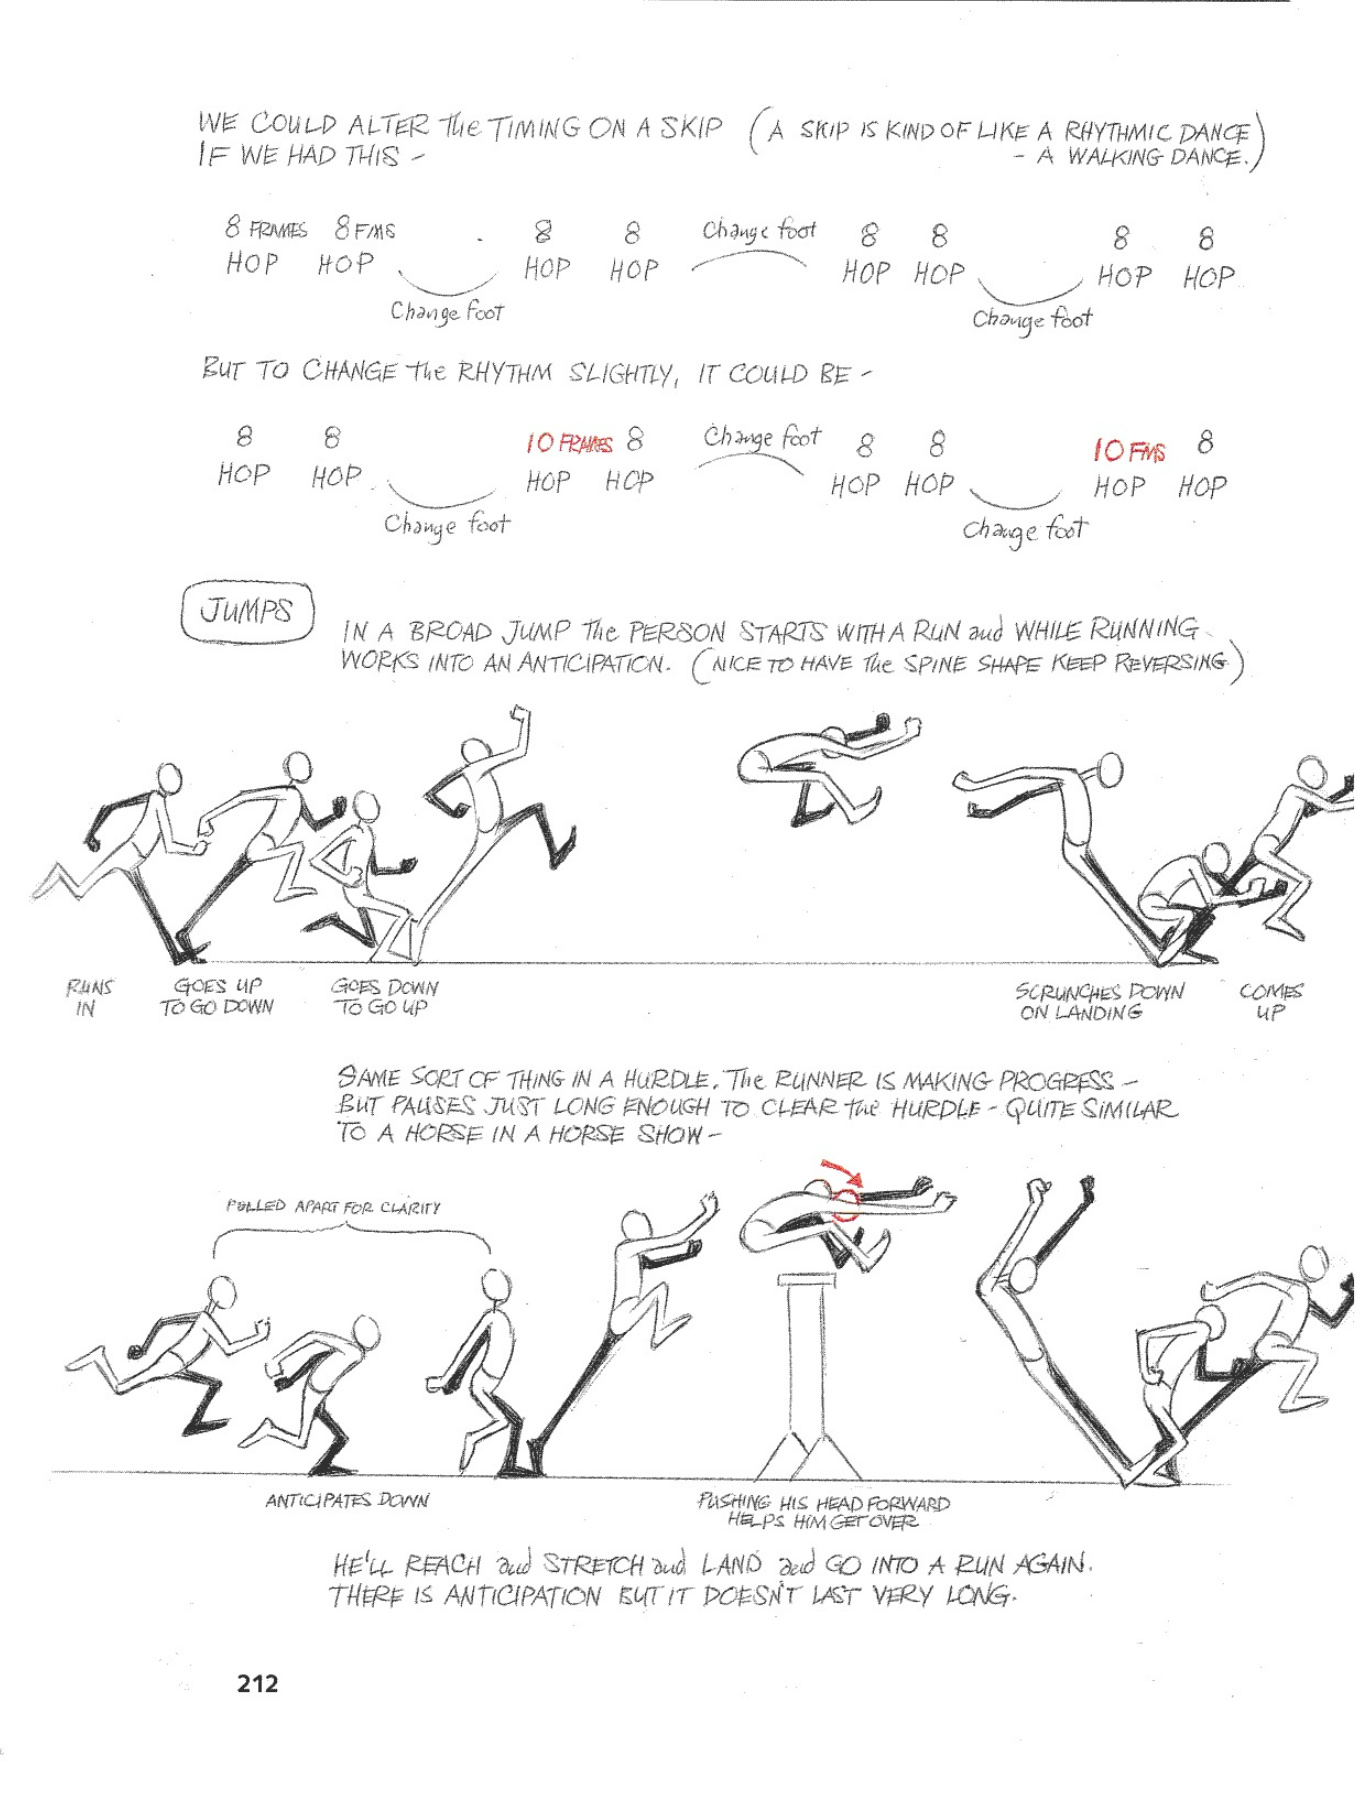 WE COULD ALTER The TIMING ON A SKIP (A SKIP IS KIND OF LIKE A RHYTHMIC DANCE
IF WE HAD THIS – – A WALKING DANCE.)
8 FRAMES 8 FMS 8 8 Change foot 8 8 8 8
HOP HOP HOP HOP HOP HOP HOP HOP
Change foot Change foot
BUT TO CHANGE the RHYTHM SLIGHTLY, IT COULD BE –
8 8 10 FRAMES 8 Change foot 8 8 10 FMS 8
HOP HOP HOP HOP HOP HOP HOP HOP
Change foot Change foot
JUMPS
IN A BROAD JUMP The PERSON STARTS WITH A RUN and WHILE RUNNING
WORKS INTO AN ANTICIPATION. (NICE TO HAVE The SPINE SHAPE KEEP REVERSING)
RUNS GOES UP GOES DOWN SCRUNCHES DOWN COMES
IN TO GO DOWN TO GO UP ON LANDING UP
SAME SORT OF THING IN A HURDLE. The RUNNER IS MAKING PROGRESS –
BUT PAUSES JUST LONG ENOUGH TO CLEAR the HURDLE – QUITE SIMILAR
TO A HORSE IN A HORSE SHOW –
PULLED APART FOR CLARITY
ANTICIPATES DOWN PUSHING HIS HEAD FORWARD
HELPS HIM GET OVER
HE'LL REACH and STRETCH and LAND and GO INTO A RUN AGAIN.
THERE IS ANTICIPATION BUT IT DOESN'T LAST VERY LONG.
212